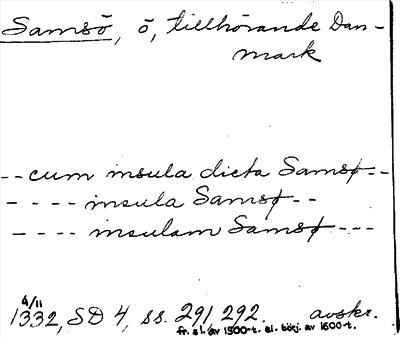 Samsö, ö, tillhörande Dan-
mark
-- cum insula dicta Samsø --
- - - - insula Samsø - -
- - - - insulam Samsø - - -
4/11
1332, SD 4, ss. 291, 292. avskr.
fr. sl. av 1500-t. el. börj. av 1600-t.